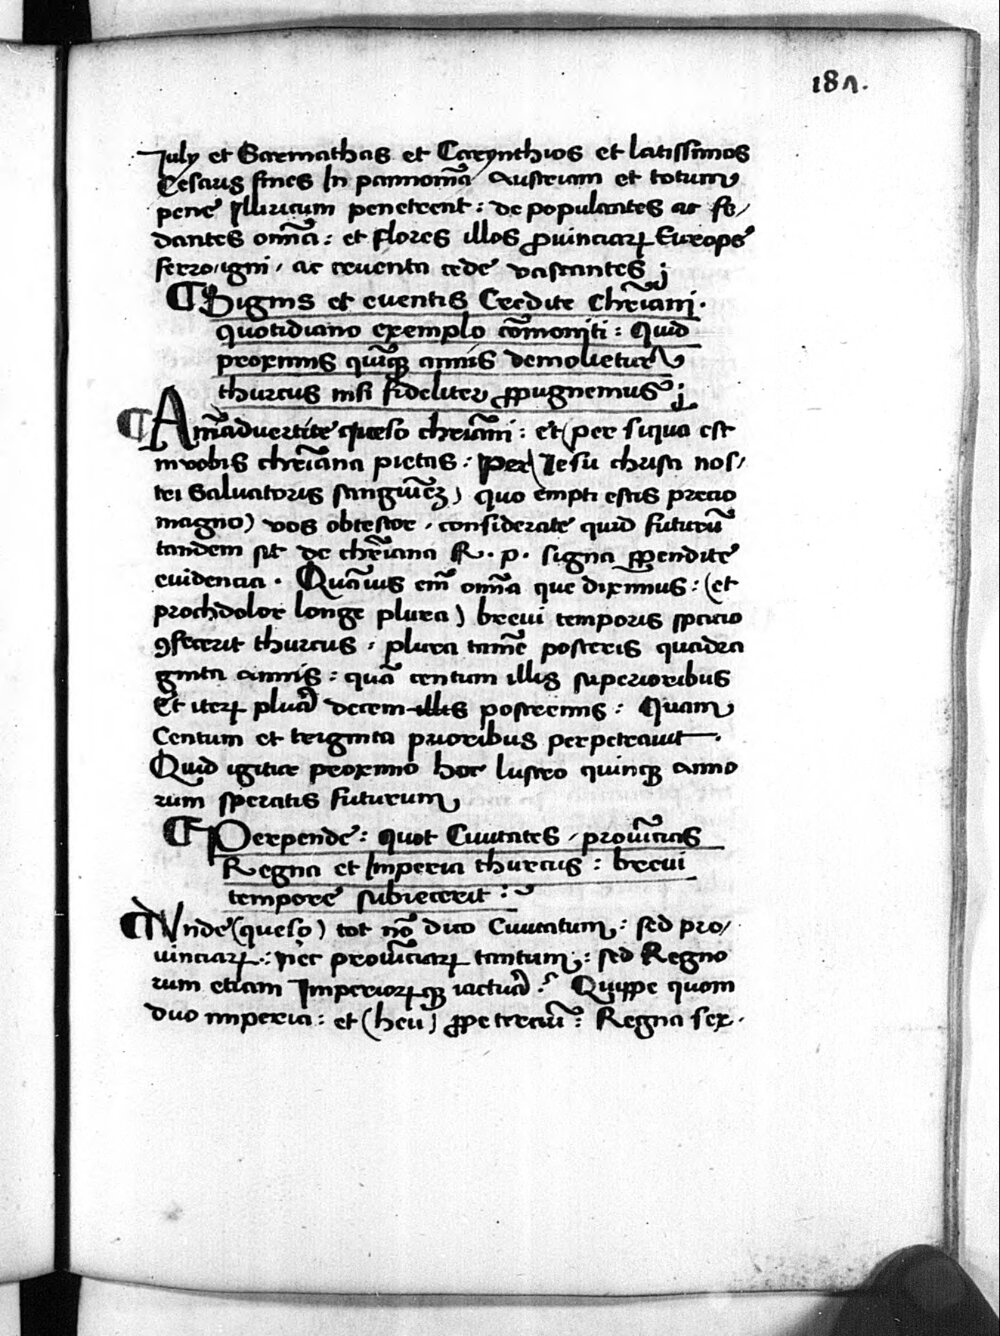 187.
July et Sarmathas et Carynthios et latissimos
Cesaris fines In pannoniā Austriam et totum
pene Illiricum penetrent : de populantes ac fe/
dantes omīa : et flores illos ꝓuinciaꝝ Europe
ferro/igni/ ac cruenta cede vastantes ;
¶ Signis et euentis Credite chr̄iani .
quotidiano exemplo cōmoniti : Quid
proximis quīqꝫ annis demolietur
thurcus nisi fideliter ꝓpugnemus ;
¶ Aīaduertite queso chr̄iani : et (per siqua est
in vobis chr̄iana pietas : Per Iesu christi nos/
tri Saluatoris sanguinē) quo empti estis precio
magno) vos obtestor , considerate quid futurū
tandem sit de chr̄iana R . p . signa ꝑpendite
euidencia . Quāuis em̄ omīa que diximus : (et
prochdolor longe plura) breui temporis spacio
ꝯfecerit thurcus , plura tamē posteris quadra
ginta annis : quā centum illis superioribus
Et iteꝝ plura decem illis postremis : Quam
Centum et triginta prioribus perpetrauit .
Quid igitur proximo hoc lustro quinqꝫ anno
rum speratis futurum
¶ Perpende : quot Ciuitates , prouīcias
Regna et Imperia thurcus : breui
tempore subiecerit :
¶ Vnde (queso) tot nō dico Ciuitatum : sed pro/
uinciaꝝ : nec prouīciaꝝ tantum : sed Regno
rum etiam Imperioꝝqꝫ iactura . Quippe quom
duo imperia : et (heu) ꝓpe terciū : Regna sex .